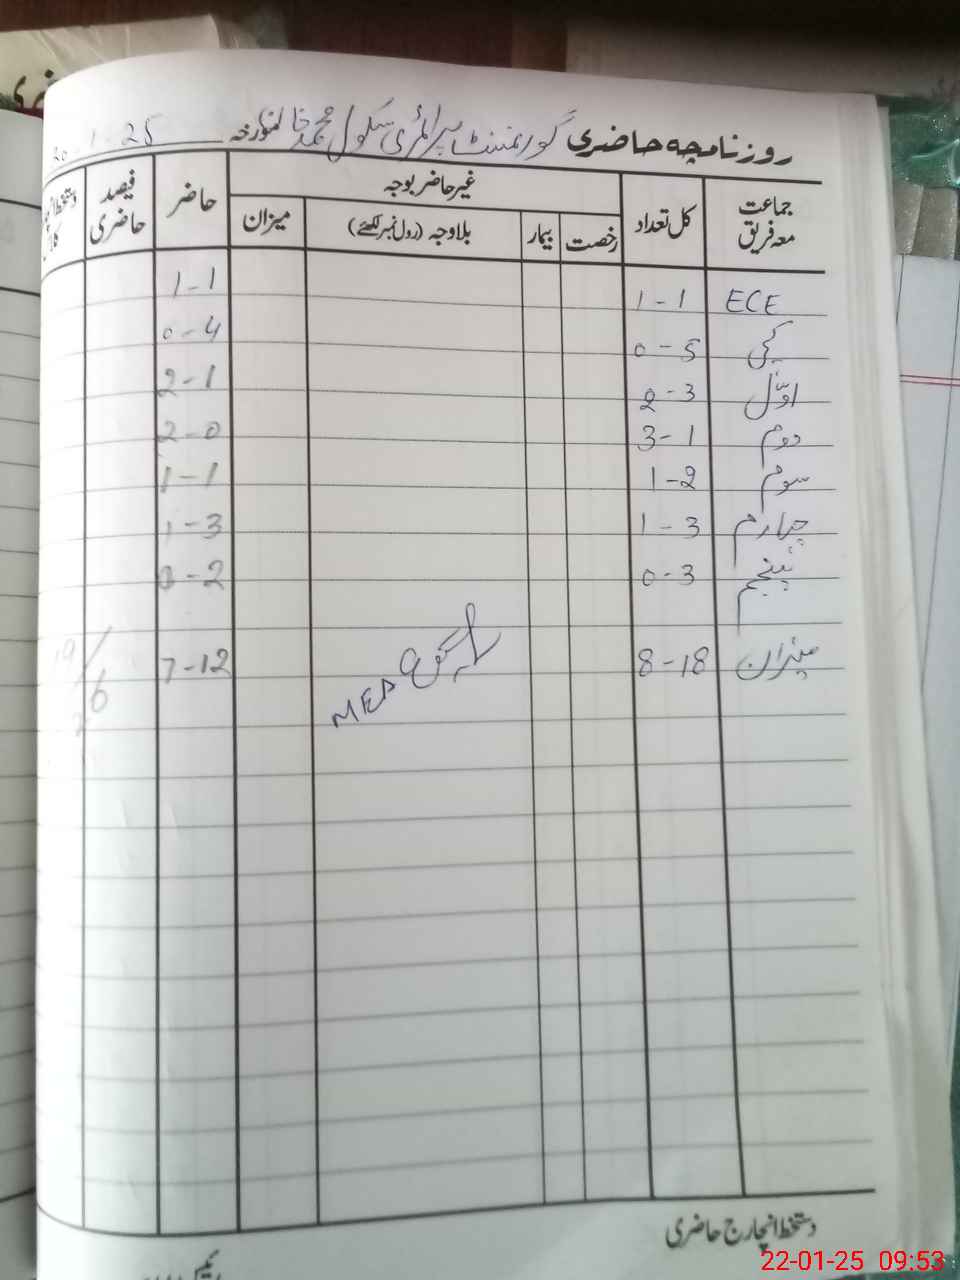 روزنامچہ حاضری گورنمنٹ پرائمری سکول محمد خان مورخہ 20-1-25
جماعت معہ فریق کل تعداد غیر حاضر بوجہ حاضر فیصد حاضری
رخصت بیمار بلاوجہ (رول نمبر لکھئے) میزان
ECE 1-1 1-1
کچی 0-5 0-4
اوّل 2-3 2-1
دوم 3-1 2-0
سوم 1-2 1-1
چہارم 1-3 1-3
پنجم 0-3 0-2
میزان 8-18 7-12
MEA
19/26
دستخط انچارج حاضری
22-01-25 09:53